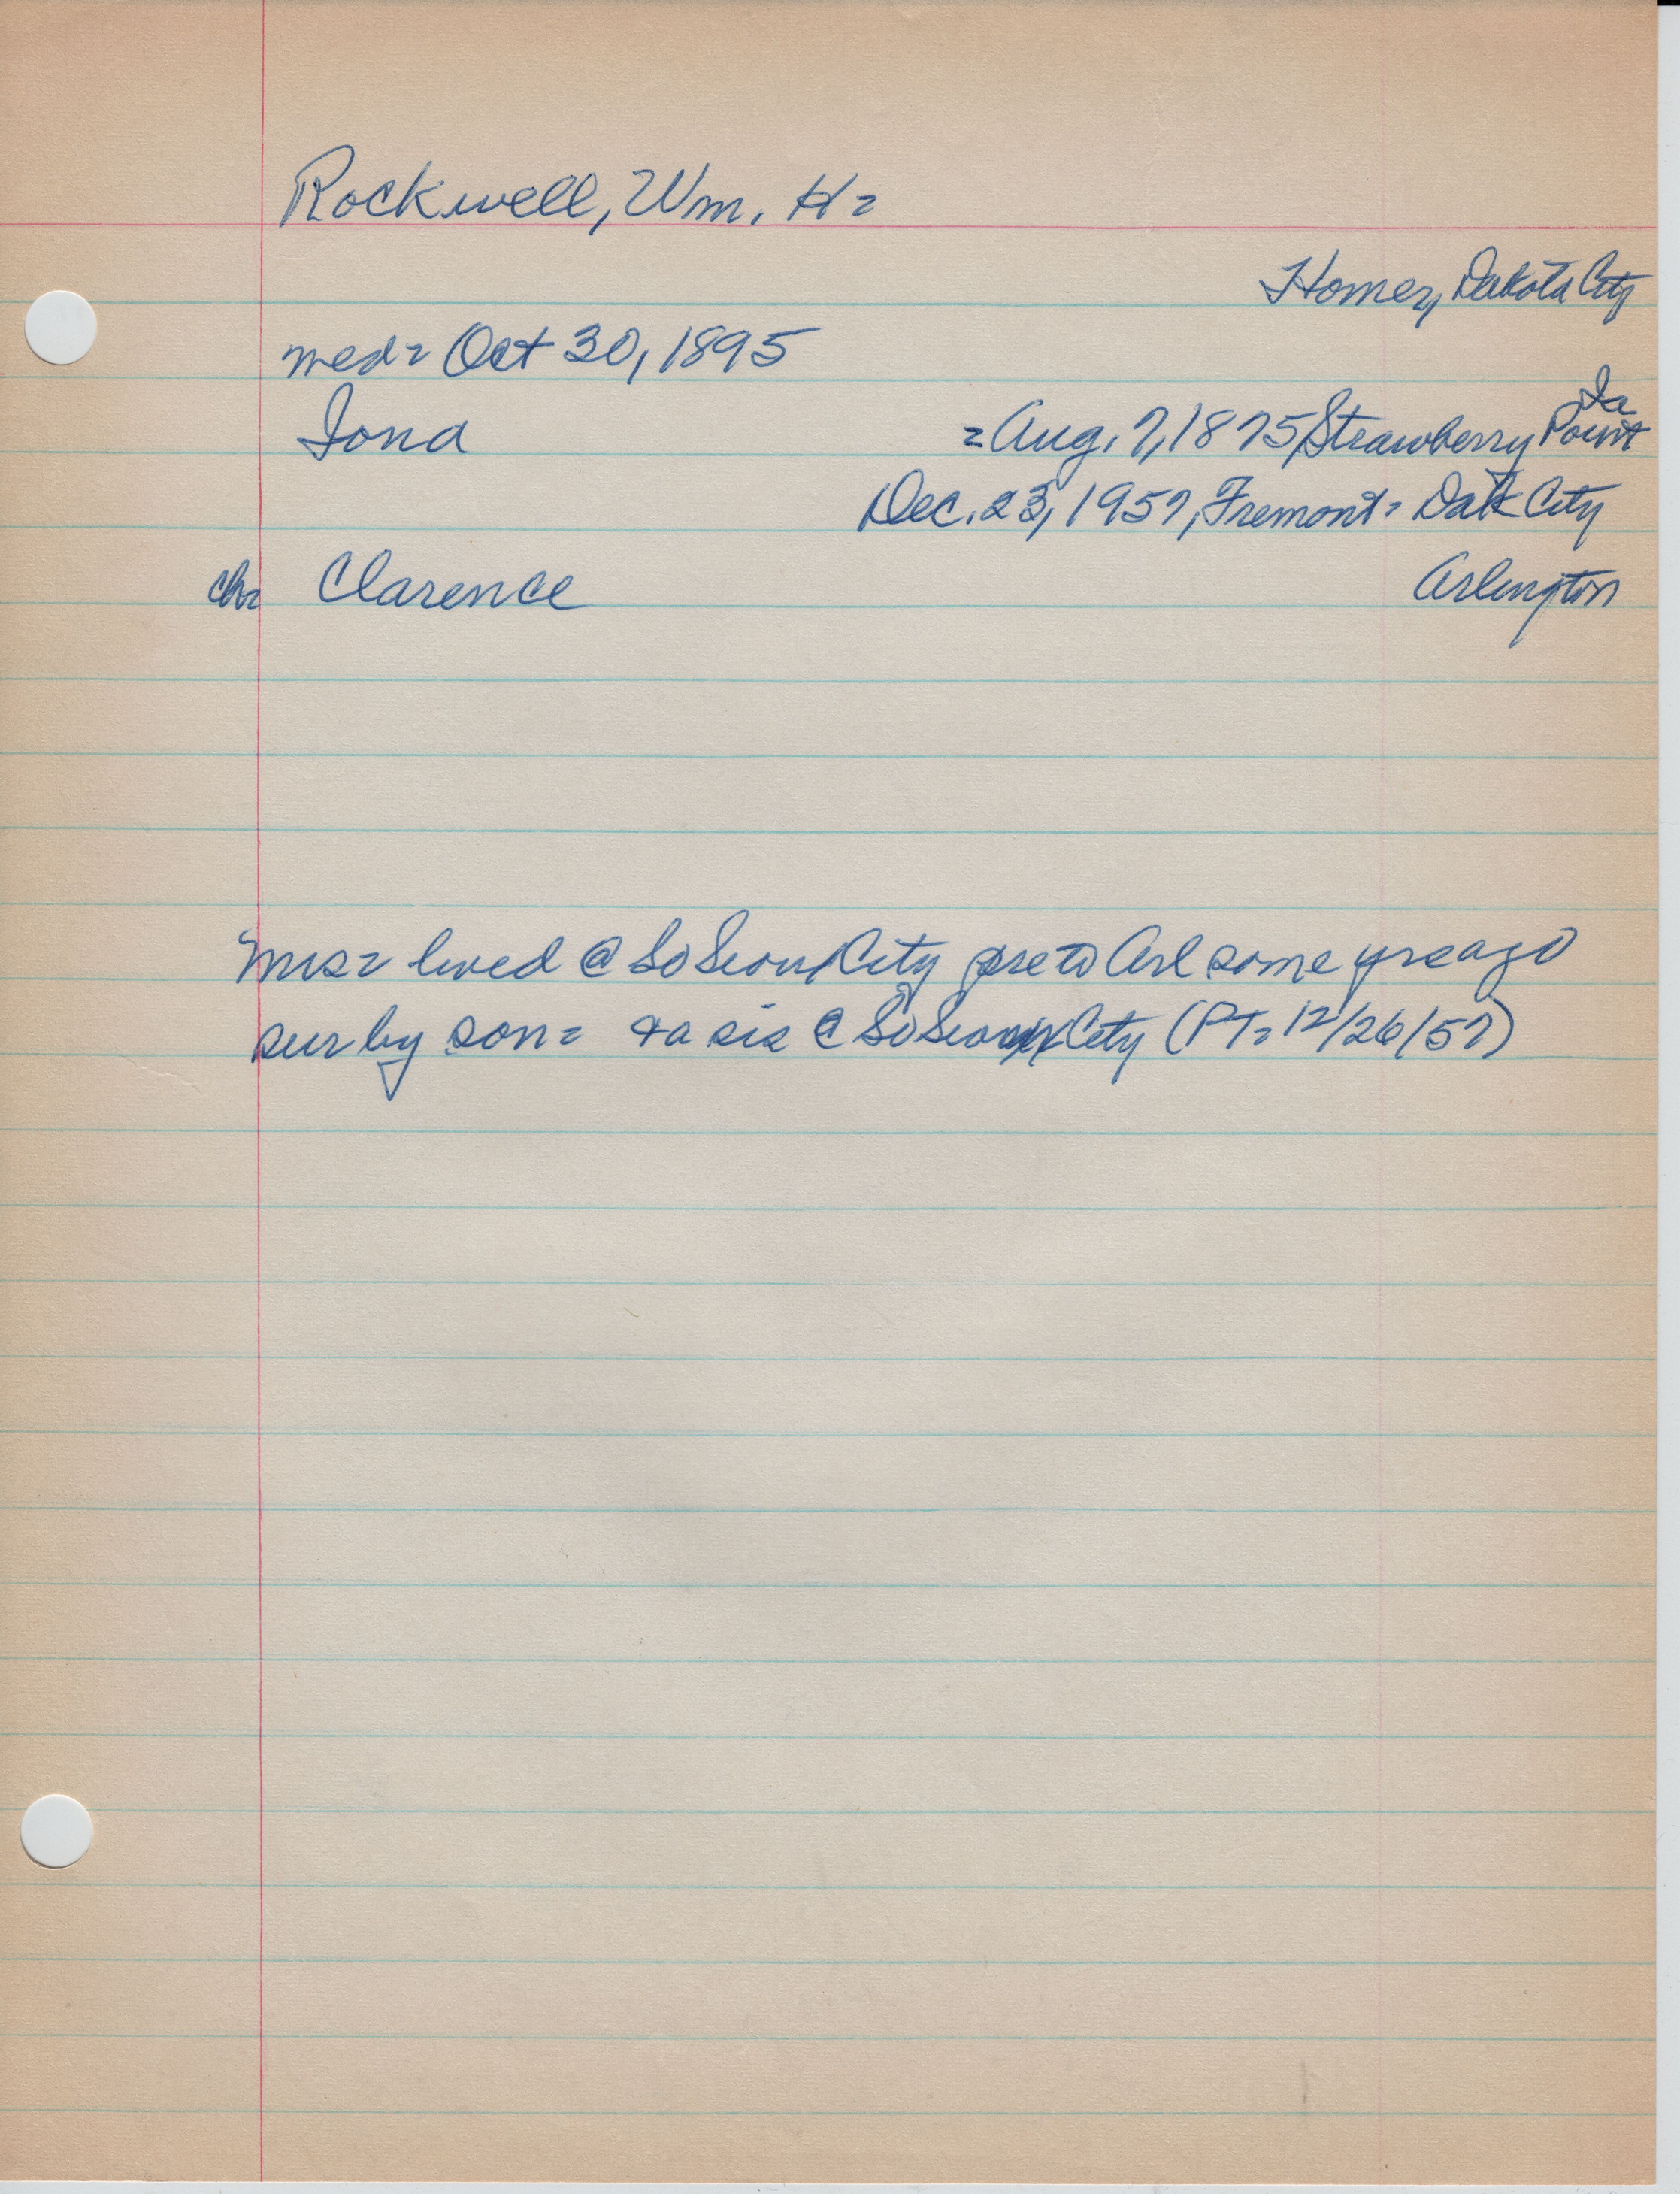 Rockwell, Wm. H=
Homer, Dakota City
med= Oct 30, 1895
Ia
Iona =Aug. 7, 1875, Strawberry Point
Dec. 23, 1957, Fremont= Dak City
ch= Clarence Arlington
Mrs= lived @ So Sioux City pre to Arl some yrs ago
sur by son= + a sis @ So Sioux City (PT= 12/26/57)